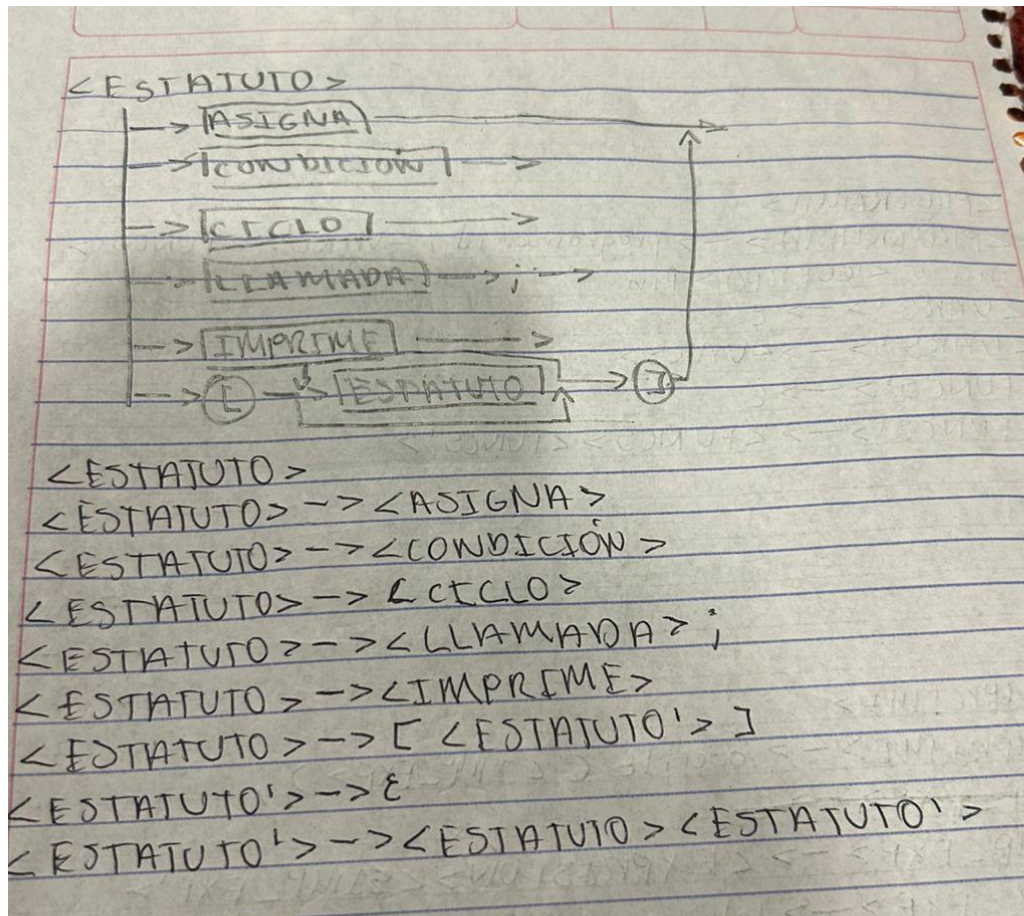 <ESTATUTO>
ASIGNA
CONDICIÓN
CICLO
LLAMADA ;
IMPRIME
[ ESTATUTO ]
<ESTATUTO>
<ESTATUTO> -> <ASIGNA>
<ESTATUTO> -> <CONDICIÓN>
<ESTATUTO> -> <CICLO>
<ESTATUTO> -> <LLAMADA> ;
<ESTATUTO> -> <IMPRIME>
<ESTATUTO> -> [ <ESTATUTO'> ]
<ESTATUTO'> -> ε
<ESTATUTO'> -> <ESTATUTO> <ESTATUTO'>